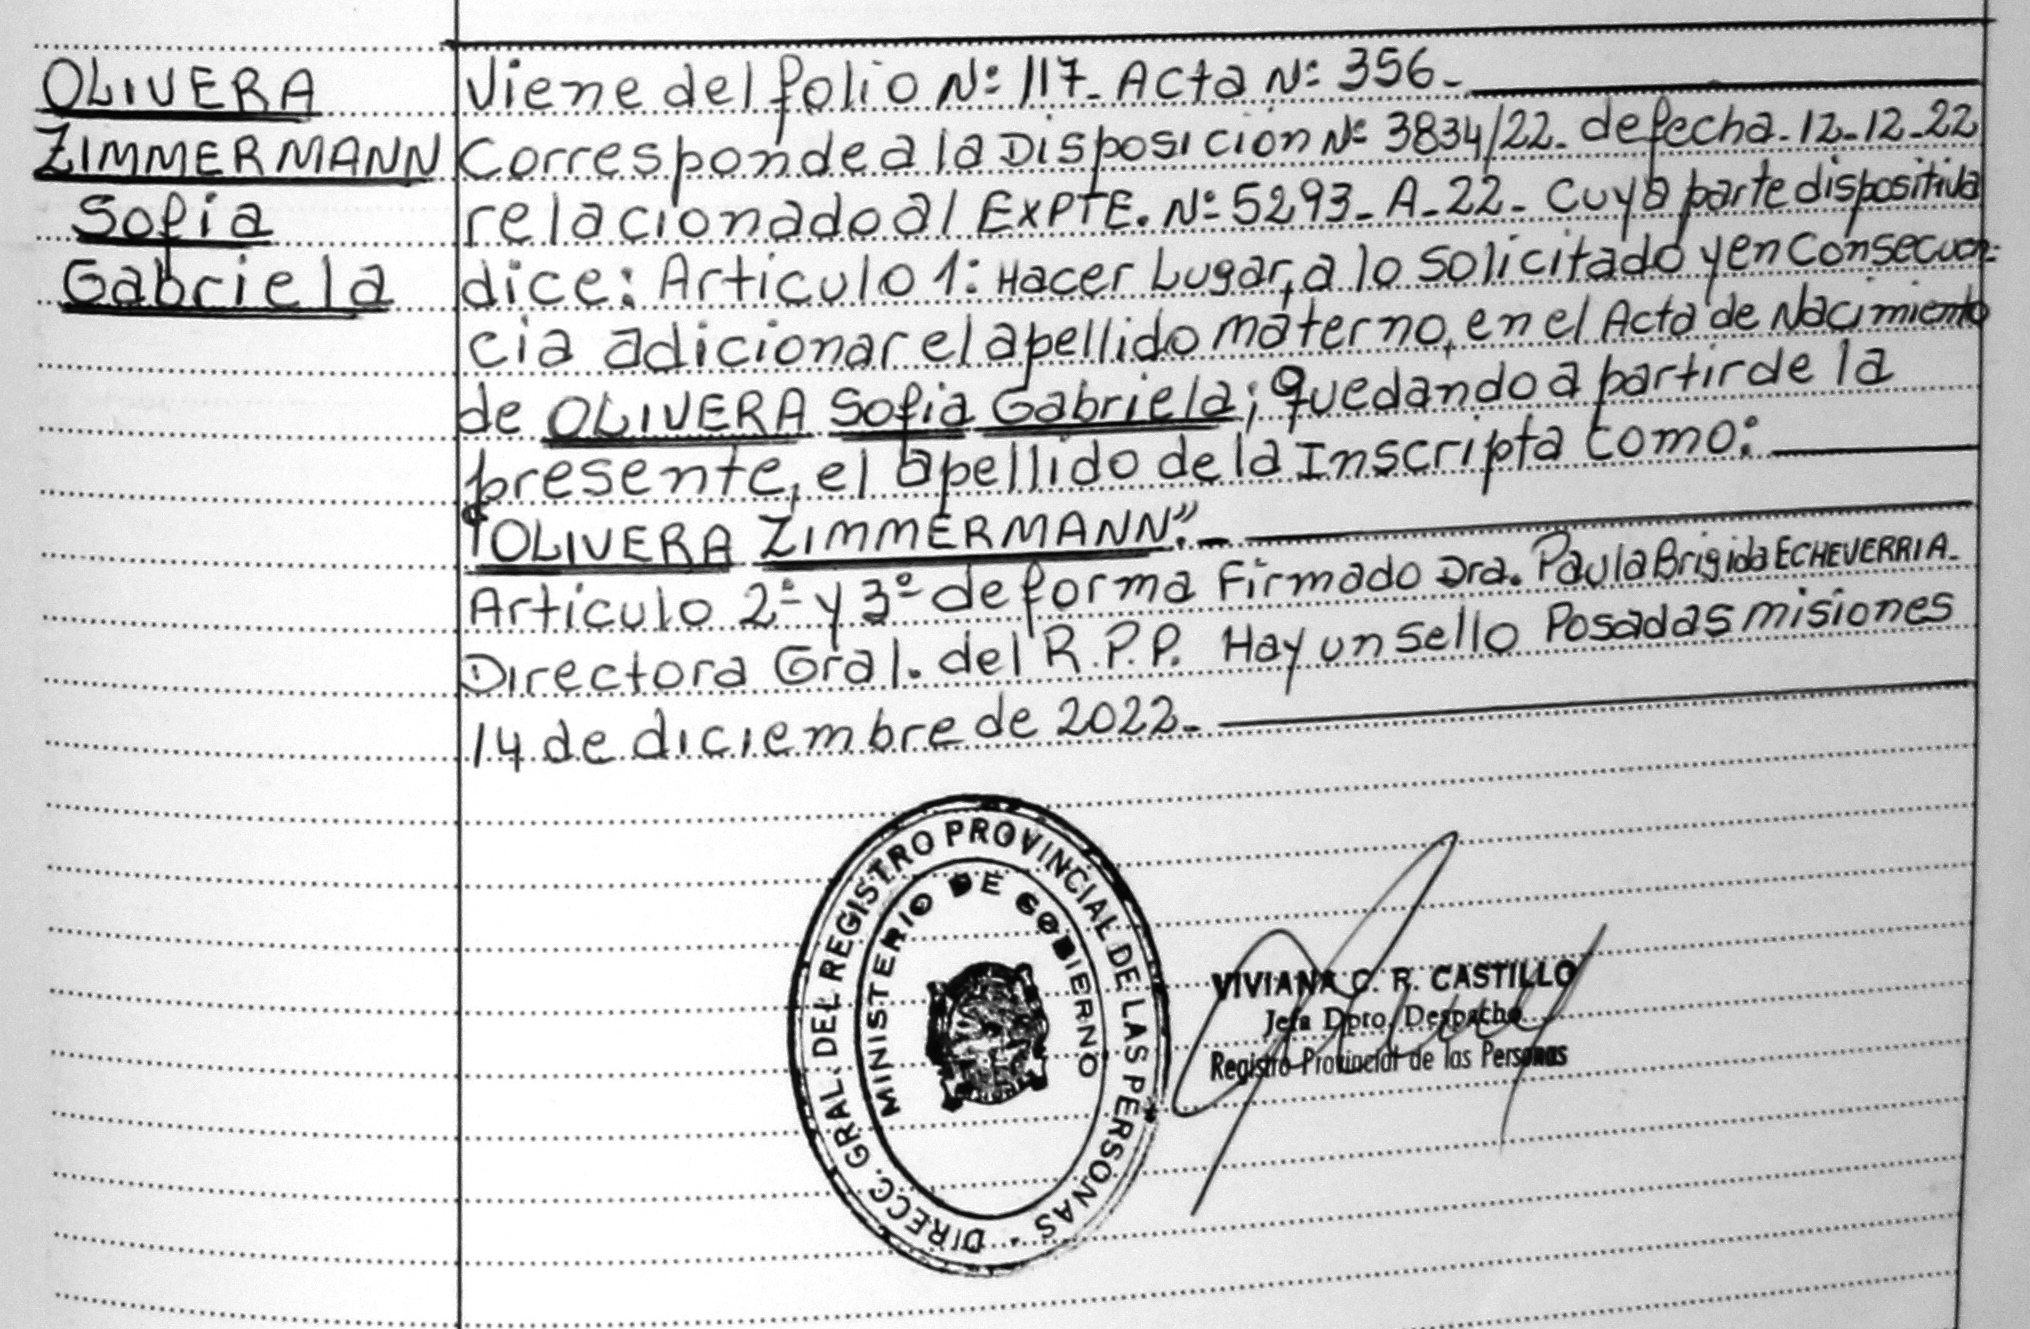 OLIVERA
ZIMMERMANN
Sofia
Gabriela
Viene del folio Nº 117_ Acta Nº 356_
Corresponde a la Disposición Nº 3834/22_ de fecha_12_12_22
relacionado al EXPTE. Nº 5293_A_22_ Cuya parte dispositiva
dice: Articulo 1: Hacer Lugar, a lo solicitado y en Consecuen-
cia adicionar el apellido materno, en el Acta de Nacimiento
de OLIVERA Sofia Gabriela; quedando a partir de la
presente, el apellido de la Inscripta como:
"OLIVERA ZIMMERMANN"._
Articulo 2º y 3º de forma Firmado Dra. Paula Brigida ECHEVERRIA_
Directora Gral. del R.P.P. Hay un sello Posadas misiones
14 de diciembre de 2022_
DIRECC. GRAL. DEL REGISTRO PROVINCIAL DE LAS PERSONAS -
MINISTERIO DE GOBIERNO
VIVIANA C. R. CASTILLO
Jefa Dpto. Despacho
Registro Provincial de las Personas